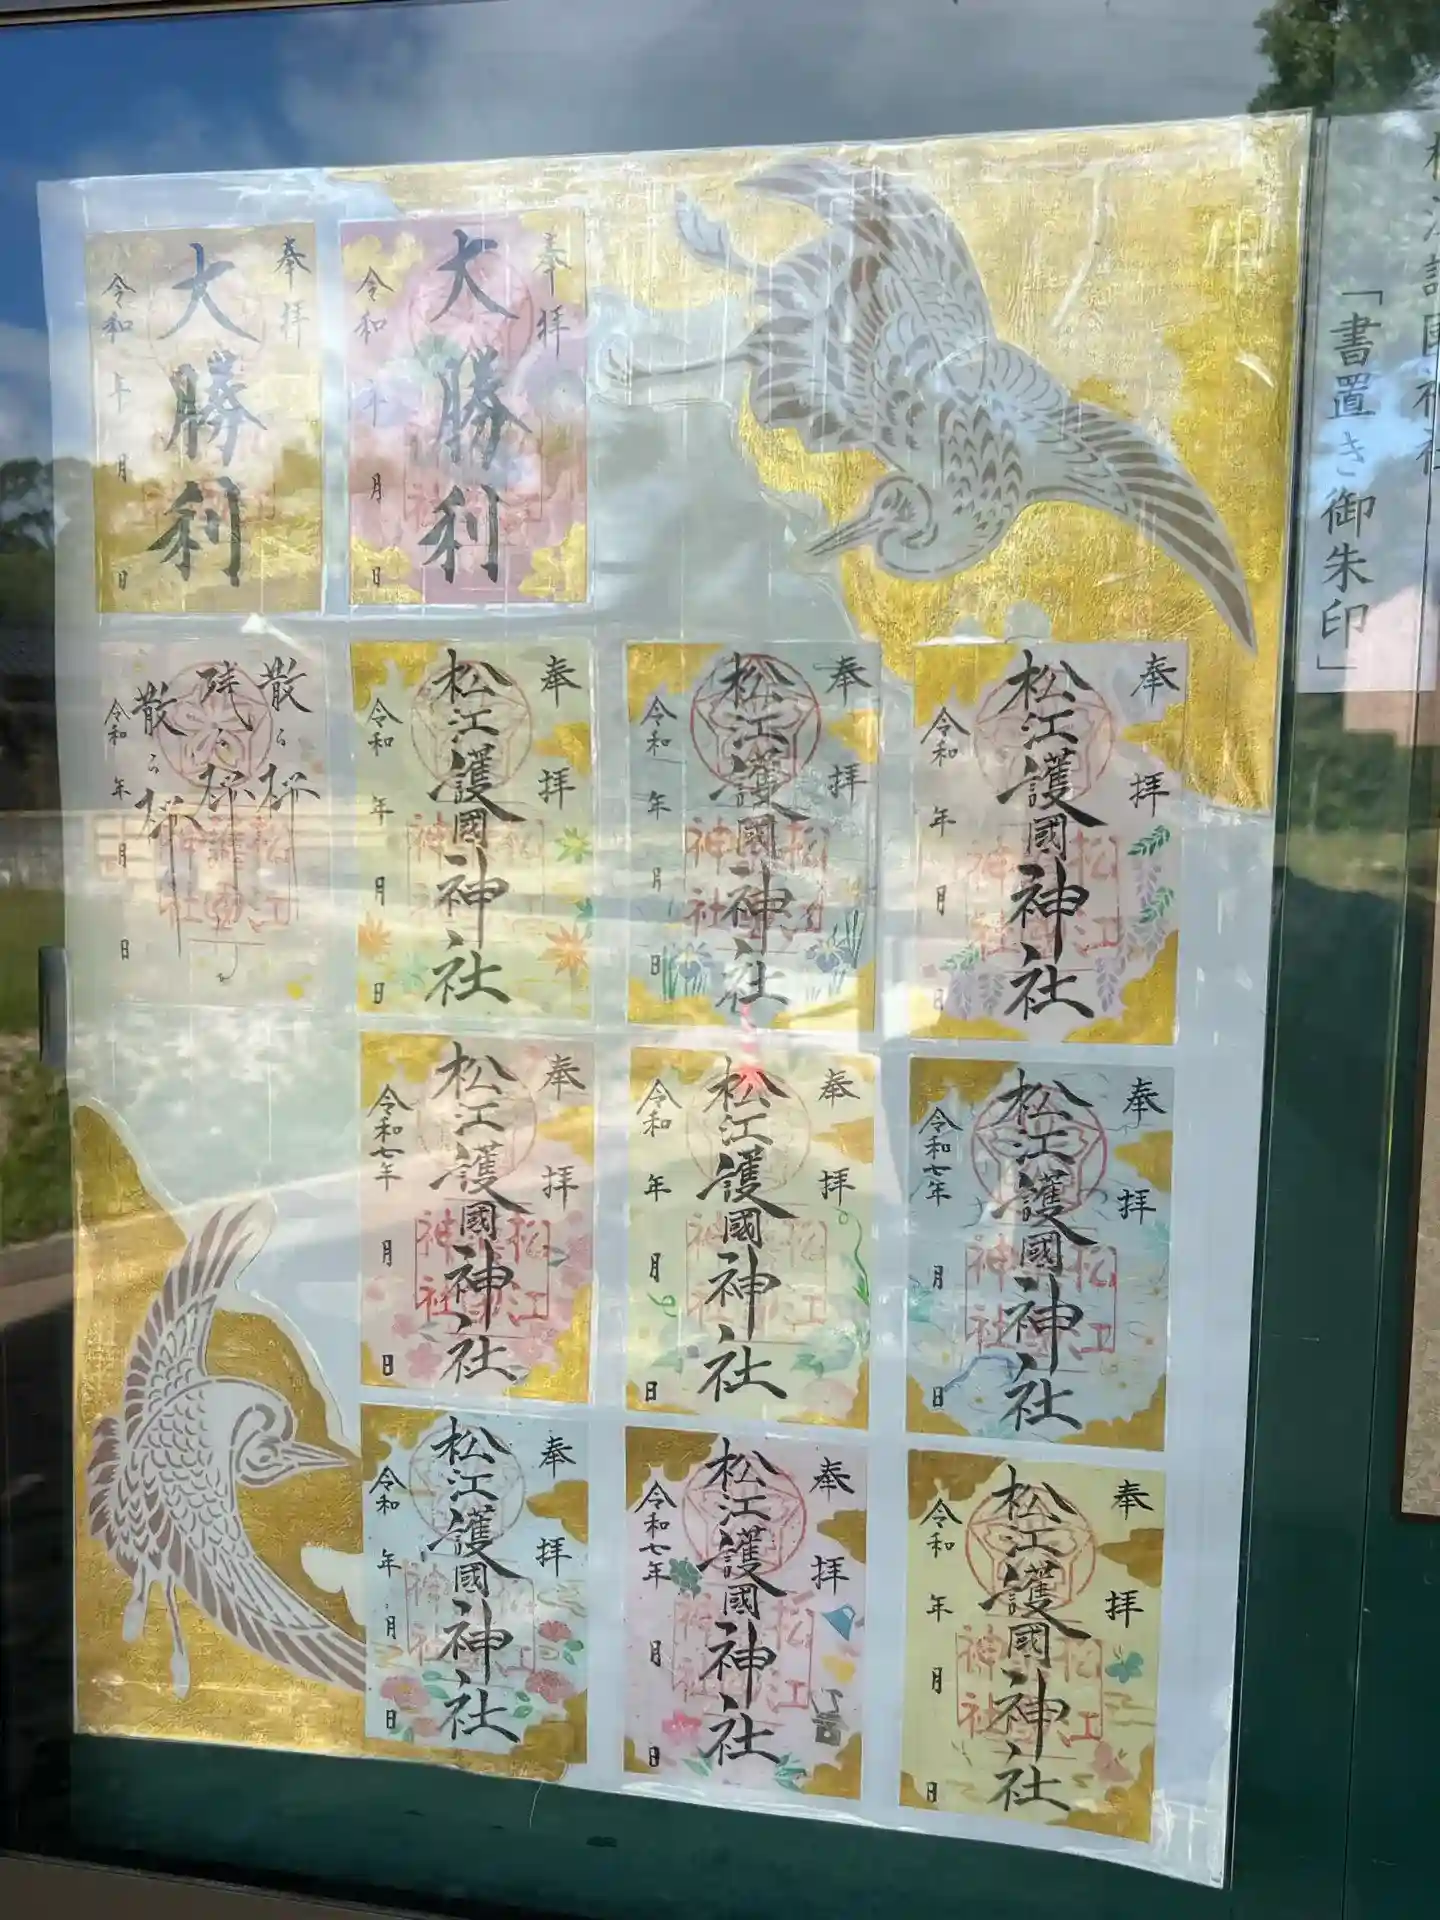 松江護國神社
「書置き御朱印」
奉拝
大勝利
令和 年 月 日
奉拝
大勝利
令和 年 月 日
散る桜
残る桜も
散る桜
令和 年 月 日
奉拝
松江護國神社
令和 年 月 日
奉拝
松江護國神社
令和 年 月 日
奉拝
松江護國神社
令和 年 月 日
奉拝
松江護國神社
令和七年 月 日
奉拝
松江護國神社
令和 年 月 日
奉拝
松江護國神社
令和七年 月 日
奉拝
松江護國神社
令和 年 月 日
奉拝
松江護國神社
令和七年 月 日
奉拝
松江護國神社
令和 年 月 日